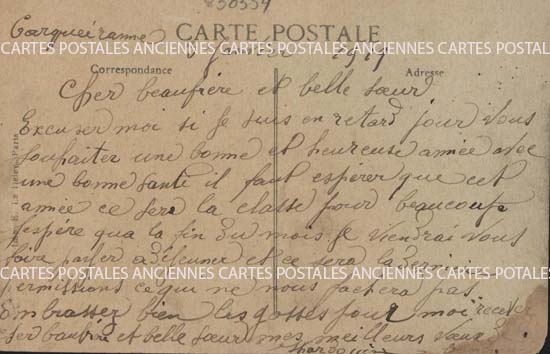 830354
Carqueiranne CARTE POSTALE
CARTES POSTALES ANCIENNES CARTES POSTALES ANCIENNES CARTES POSTALES ANCIENNES
Janvier 1919
Correspondance Adresse
Cher beaufrère et belle sœur
Excuser moi si je suis en retard pour vous
souhaiter une bonne et heureuse année avec
une bonne santé il faut espérer que cet
année ce sera la classe pour beaucoup
J'espère qua la fin du mois je viendrai vous
faire parler a déjeuner et ce sera la dernière
CARTES POSTALES ANCIENNES CARTES POSTALES ANCIENNES CARTES POSTALES ANCIENNES
permissions ce qui ne nous fachera pas
Embrassez bien les gosses pour moi recever
cher beaufrère et belle sœur mes meilleurs vœux